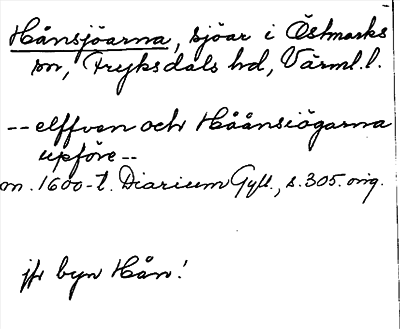 Hånsjöarna, sjöar i Östmarks
sn, Fryksdals hd, Värml. l.
-- elffven och Håånsiögarna
upföre --
m. 1600-t. Diarium Gyll., s. 305. orig.
jfr byn Hån!